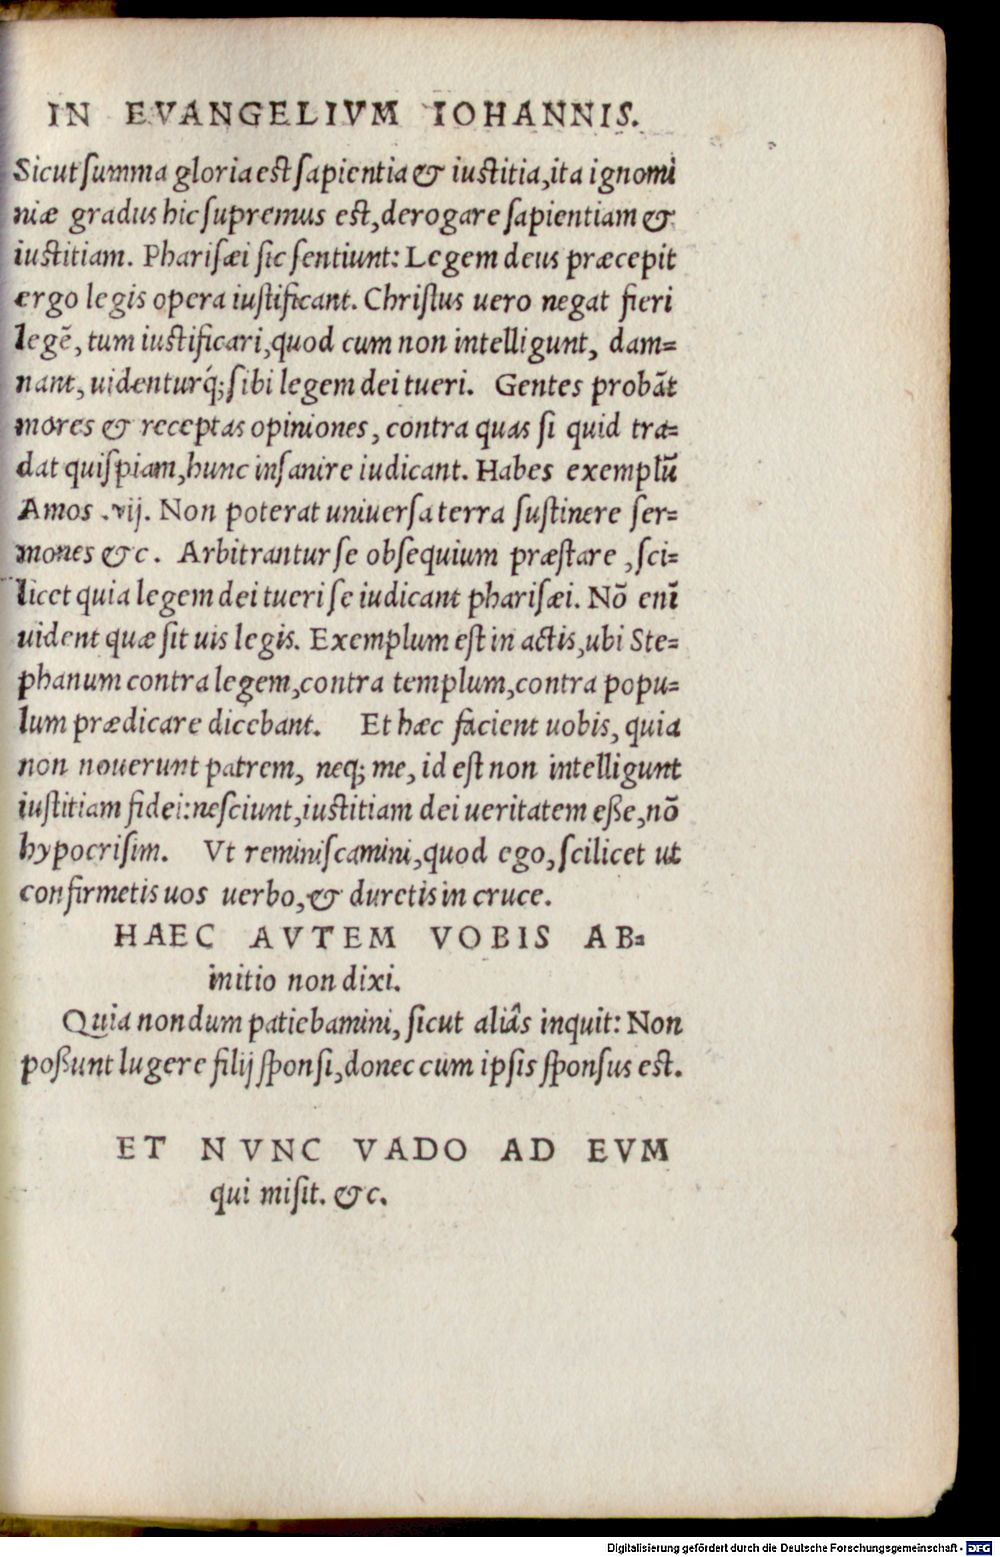 IN EVANGELIVM IOHANNIS.
Sicut summa gloria est sapientia & iustitia, ita ignomi
niæ gradus hic supremus est, derogare sapientiam &
iustitiam. Pharisæi sic sentiunt: Legem deus præcepit
ergo legis opera iustificant. Christus uero negat fieri
legē, tum iustificari, quod cum non intelligunt, dam=
nant, uidenturq́; sibi legem dei tueri. Gentes probāt
mores & receptas opiniones, contra quas si quid tra=
dat quispiam, hunc insanire iudicant. Habes exemplū
Amos .vij. Non poterat uniuersa terra sustinere ser=
mones &c. Arbitrantur se obsequium præstare, sci=
licet quia legem dei tueri se iudicant pharisæi. Nō enī
uident quæ sit uis legis. Exemplum est in actis, ubi Ste=
phanum contra legem, contra templum, contra popu=
lum prædicare dicebant. Et hæc facient uobis, quia
non nouerunt patrem, neq; me, id est non intelligunt
iustitiam fidei: nesciunt, iustitiam dei ueritatem eße, nō
hypocrisim. Vt reminiscamini, quod ego, scilicet ut
confirmetis uos uerbo, & duretis in cruce.
HAEC AVTEM VOBIS AB=
initio non dixi.
Quia nondum patiebamini, sicut aliâs inquit: Non
poßunt lugere filij sponsi, donec cum ipsis sponsus est.
ET NVNC VADO AD EVM
qui misit. &c.
Digitalisierung gefördert durch die Deutsche Forschungsgemeinschaft - DFG